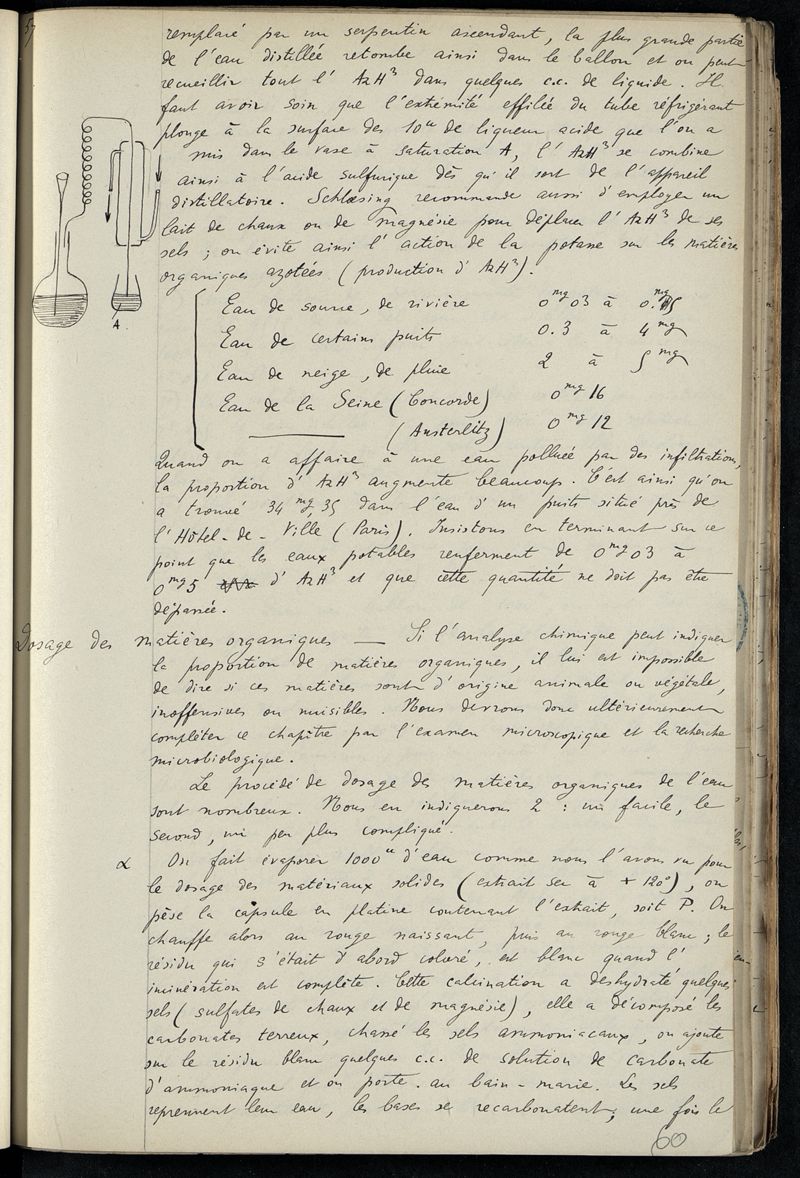 remplacé par un serpentin ascendant, la plus grande partie
de l'eau distillée retombe ainsi dans le ballon et on peut
recueillir tout l'AzH³ dans quelques c.c. de liquide. Il
faut avoir soin que l'extrémité effilée du tube réfrigérant
plonge à la surface des 10cc de liqueur acide que l'on a
mis dans le vase à saturation A, l'AzH³ se combine
ainsi à l'acide sulfurique dès qu'il sort de l'appareil
distillatoire. Schloesing recommande aussi d'employer un
lait de chaux ou de magnésie pour déplacer l'AzH³ de ses
sels ; on évite ainsi l'action de la potasse sur les matières
organiques azotées (production d'AzH³).
A
Eau de source, de rivière 0mg03 à 0.mg15
Eau de certains puits 0.3 à 4mg
Eau de neige, de pluie 2 à 5mg
Eau de la Seine (Concorde) 0mg16
——— (Austerlitz) 0mg12
Quand on a affaire à une eau polluée par des infiltrations,
la proportion d'AzH³ augmente beaucoup. C'est ainsi qu'on
a trouvé 34mg,35 dans l'eau d'un puits situé près de
l'Hôtel-de-Ville (Paris). Insistons en terminant sur ce
point que les eaux potables renferment de 0mg03 à
0mg5 d'AzH³ et que cette quantité ne doit pas être
dépassée.
Dosage des matières organiques — Si l'analyse chimique peut indiquer
la proportion de matières organiques, il lui est impossible
de dire si ces matières sont d'origine animale ou végétale,
inoffensives ou nuisibles. Nous devrons donc ultérieurement
compléter ce chapitre par l'examen microscopique et la recherche
microbiologique.
Le procédé de dosage des matières organiques de l'eau
sont nombreux. Nous en indiquerons 2 : un facile, le
second, un peu plus compliqué.
α On fait évaporer 1000cc d'eau comme nous l'avons vu pour
le dosage des matériaux solides (extrait sec à + 120°), on
pèse la capsule en platine contenant l'extrait, soit P. On
chauffe alors au rouge naissant, puis au rouge blanc ; le
résidu qui s'était d'abord coloré, est blanc quand l'
incinération est complète. Cette calcination a deshydraté quelques
sels (sulfates de chaux et de magnésie), elle a décomposé les
carbonates terreux, chassé les sels ammoniacaux, on ajoute
sur le résidu blanc quelques c.c. de solution de carbonate
d'ammoniaque et on porte au bain-marie. Les sels
reprennent leur eau, les bases se recarbonatent, une fois le
60